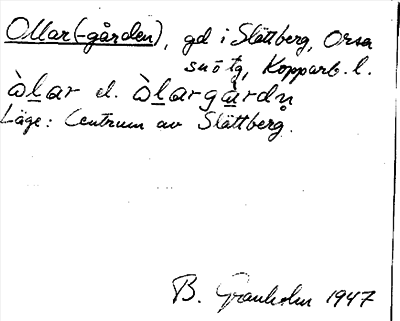 Ollar(-gården), gd i Slättberg, Orsa
sn ö tg, Kopparb. l.
òl̲ar el. òl̲argå̀rdn̥
Läge: Centrum av Slättberg.
B. Granholm 1947